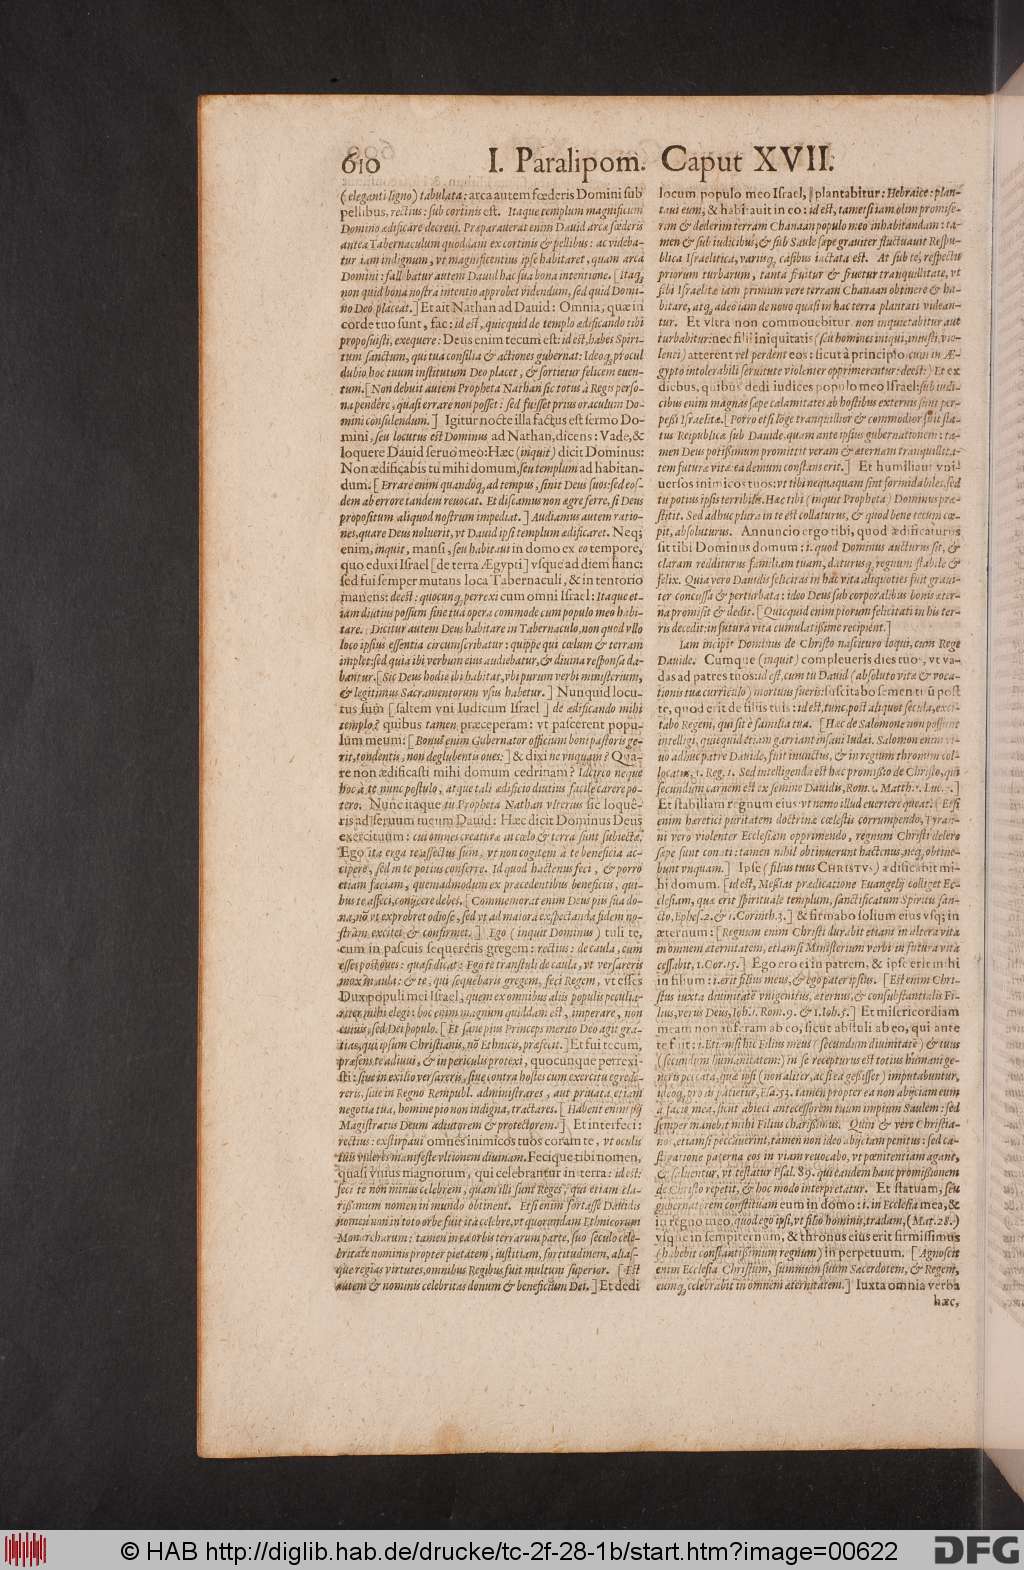 610 I. Paralipom. Caput XVII.
(eleganti ligno) tabulata: arca autem fœderis Domini sub
pellibus, rectius: sub cortinis est. Itaque templum magnificum
Domino ædificare decrevi. Præparauerat enim Dauid arcæ fœderis
antea Tabernaculum quoddam ex cortinis & pellibus: ac videba-
tur iam indignum, vt magnificentius ipse habitaret, quam arca
Domini: fallebatur autem Dauid hac sua bona intentione. [Itaq;
non quid bona nostra intentio approbet videndum, sed quid Domi-
no Deo placeat.] Et ait Nathan ad Dauid: Omnia, quæ in
corde tuo sunt, fac: id est, quicquid de templo ædificando tibi
proposuisti, exequere: Deus enim tecum est: id est, habes Spiri-
tum sanctum, qui tua consilia & actiones gubernat: Ideoq; procul
dubio hoc tuum institutum Deo placet, & sortietur felicem euen-
tum. [Non debuit autem Propheta Nathan sic totus à Regis perso-
na pendêre, quasi errare non posset: sed fuisset prius oraculum Do-
mini consulendum.] Igitur nocte illa factus est sermo Do-
mini, seu locutus est Dominus ad Nathan, dicens: Vade, &
loquere Dauid seruo meo: Hæc (inquit) dicit Dominus:
Non ædificabis tu mihi domum, seu templum ad habitan-
dum. [Errare enim quandoq; ad tempus, sinit Deus suos: sed eos-
dem ab errore tandem reuocat. Et discamus non ægre ferre, si Deus
propositum aliquod nostrum impediat.] Audiamus autem ratio-
nes, quare Deus noluerit, vt Dauid ipsi templum ædificaret. Neq;
enim, inquit, mansi, seu habitaui in domo ex eo tempore,
quo eduxi Israel [de terra Ægypti] vsque ad diem hanc:
sed fui semper mutans loca Tabernaculi, & in tentorio
manens: deest: quocunq; perrexi cum omni Israel: Itaque et-
iam diutius possum sine tua opera commode cum populo meo habi-
tare. Dicitur autem Deus habitare in Tabernaculo, non quod vllo
loco ipsius essentia circumscribatur: quippe qui cœlum & terram
implet: sed quia ibi verbum eius audiebatur, & diuina responsa da-
bantur. [Sic Deus hodie ibi habitat, vbi purum verbi ministerium,
& legitimus Sacramentorum vsus habetur.] Nunquid locu-
tus sum [saltem vni Iudicum Israel] de ædificando mihi
templo? quibus tamen præceperam: vt pascerent popu-
lum meum: [Bonus enim Gubernator officium boni pastoris ge-
rit, tondentis, non deglubentis oues:] & dixi ne vnquam? Qua-
re non ædificasti mihi domum cedrinam? Idcirco neque
hoc à te nunc postulo, atque tali ædificio diutius facile carere po-
tero. Nunc itaque tu Propheta Nathan vlterius sic loquê-
ris ad seruum meum Dauid: Hæc dicit Dominus Deus
exercituum: cui omnes creaturæ in cœlo & terra sunt subiectæ.
Ego ita erga te affectus sum, vt non cogitem à te beneficia ac-
cipere, sed in te potius conferre. Id quod hactenus feci, & porro
etiam faciam, quemadmodum ex præcedentibus beneficiis, qui-
bus te affeci, conijcere debes. [Commemorat enim Deus piis sua do-
na, nõ vt exprobret odiose, sed vt ad maiora exspectanda fidem no-
stram excitet & confirmet.] Ego (inquit Dominus) tuli te,
cum in pascuis sequereris gregem: rectius: de caula, cum
esses post oues: quasi dicat: Ego te transtuli de caula, vt versareris
mox in aula: & te, qui sequebaris gregem, feci Regem, vt esses
Dux populi mei Israel, quem ex omnibus aliis populis peculia-
riter mihi elegi: hoc enim magnum quiddam est, imperare, non
cuiuis, sed Dei populo. [Et sane pius Princeps merito Deo agit gra-
tias, qui ipsum Christianis, nõ Ethnicis, præfecit.] Et fui tecum,
præsens te adiuui, & in periculis protexi, quocunque perrexi-
sti: siue in exilio versareris, siue contra hostes cum exercitu egrede-
reris, siue in Regno Rempubl. administrares, aut priuata etiam
negotia tua, homine pio non indigna, tractares. [Habent enim pij
Magistratus Deum adiutorem & protectorem.] Et interfeci:
rectius: exstirpaui omnes inimicos tuos coram te, vt oculis
tuis videris manifeste vltionem diuinam. Fecique tibi nomen,
quasi vnius magnorum, qui celebrantur in terra: id est:
feci te non minus celebrem, quam illi sunt Reges, qui etiam cla-
rissimum nomen in mundo obtinent. Etsi enim fortasse Dauidis
nomen non in toto orbe fuit ita celebre, vt quorundam Ethnicorum
Monarcharum: tamen in ea orbis terrarum parte, suo seculo cele-
britate nominis propter pietatem, iustitiam, fortitudinem, alias-
que regias virtutes, omnibus Regibus fuit multum superior. [Est
autem & nominis celebritas donum & beneficium Dei.] Et dedi
locum populo meo Israel, plantabitur: Hebraice: plan-
taui eum, & habitauit in eo: id est, tametsi iam olim promise-
ram & dederim terram Chanaan populo meo inhabitandam: ta-
men & sub iudicibus, & sub Saule sæpe grauiter fluctuauit Respu-
blica Israelitica, variisq; casibus iactata est. At sub te, respectu
priorum turbarum, tanta fruitur & fruetur tranquillitate, vt
sibi Israelitæ iam primum vere terram Chanaan obtinere & ha-
bitare, atq; adeo iam de nouo quasi in hac terra plantati videan-
tur. Et vltra non commouebitur non inquietabitur aut
turbabitur: nec filii iniquitatis (seu homines iniqui, iniusti, vio-
lenti) atterent vel perdent eos: sicut à principio cum in Æ-
gypto intolerabili seruitute violenter opprimerentur: deest:) Et ex
diebus, quibus dedi iudices populo meo Israel: sub iudi-
cibus enim magnas sæpe calamitates ab hostibus externis sunt per-
pessi Israelitæ. [Porro etsi lõge tranquillior & commodior fuit sta-
tus Reipublicæ sub Dauide, quam ante ipsius gubernationem: ta-
men Deus potissimum promittit veram & æternam tranquillita-
tem futuræ vitæ: ea demum constans erit.] Et humiliaui vni-
uersos inimicos tuos: vt tibi nequaquam sint formidabiles, sed
tu potius ipsis terribilis. Hæc tibi (inquit Propheta) Dominus præ-
stitit. Sed adhuc plura in te est collaturus, & quod bene tecum cœ-
pit, absoluturus. Annuncio ergo tibi, quod ædificaturus
sit tibi Dominus domum: i. quod Dominus aucturus sit, &
claram redditurus familiam tuam, daturusq; regnum stabile &
felix. Quia vero Dauidis felicitas in hac vita aliquoties fuit graui-
ter concussa & perturbata: ideo Deus sub corporalibus bonis æter-
na promisit & dedit. [Quicquid enim piorum felicitati in his ter-
ris decedit: in futura vita cumulatissime recipient.]
Iam incipit Dominus de Christo nascituro loqui, cum Rege
Dauide. Cumque (inquit) compleueris dies tuos, vt va-
das ad patres tuos: id est, cum tu Dauid (absoluto vitæ & voca-
tionis tuæ curriculo) mortuus fueris: suscitabo semen tuũ post
te, quod erit de filiis tuis: id est, tunc, post aliquot secula, exci-
tabo Regem, qui sit è familia tua. [Hæc de Salomone non possunt
intelligi, quicquid etiam garriant insani Iudæi. Salomon enim vi-
uo adhuc patre Dauide, fuit inunctus, & in regium thronum col-
locatus, 1. Reg. 1. Sed intelligenda est hæc promissio de Christo, qui
secundum carnem est ex semine Dauidis, Rom. 1. Matth. 1. Luc. 3.]
Et stabiliam regnum eius: vt nemo illud euertere queat. (Etsi
enim hæretici puritatem doctrinæ cœlestis corrumpendo, Tyran-
ni vero violenter Ecclesiam opprimendo, regnum Christi delere
sæpe sunt conati: tamen nihil obtinuerunt hactenus, neq; obtine-
bunt vnquam.] Ipse (filius tuus CHRISTVS) ædificabit mi-
hi domum. [id est, Messias prædicatione Euangelij colliget Ec-
clesiam, quæ erit spirituale templum, sanctificatum Spiritu san-
cto, Ephes. 2. & 1. Corinth. 3.] & firmabo solium eius vsq; in
æternum: [Regnum enim Christi durabit etiam in altera vita
in omnem æternitatem, etiamsi Ministerium verbi in futura vita
cessabit, 1. Cor. 15.] Ego ero ei in patrem, & ipse erit mihi
in filium: i. erit filius meus, & ego pater ipsius. [Est enim Chri-
stus iuxta diuinitatẽ vnigenitus, æternus, & consubstantialis Fi-
lius, verus Deus, Ioh. 1. Rom. 9. & 1. Ioh. 5.] Et misericordiam
meam non auferam ab eo, sicut abstuli ab eo, qui ante
te fuit: i. Etiamsi hic Filius meus (secundum diuinitatẽ) & tuus
(secundum humanitatem:) in se recepturus est totius humani ge-
neris peccata, quæ ipsi (non aliter, ac si ea gessisset) imputabuntur,
ideoq; pro iis patietur, Esa. 53. tamen propter ea non abijciam eum
à facie mea, sicut abieci antecessorem tuum impium Saulem: sed
semper manebit mihi Filius charissimus. Quin & vere Christia-
nos, etiamsi peccauerint, tamen non ideo abijciam penitus: sed ca-
stigatione paterna eos in viam reuocabo, vt pœnitentiam agant,
& saluentur, vt testatur Psal. 89. qui eandem hanc promissionem
de Christo repetit, & hoc modo interpretatur. Et statuam, seu
gubernatorem constituam eum in domo: i. in Ecclesia mea, &
in regno meo, quod ego ipsi, vt filio hominis, tradam, (Mat. 28.)
vsque in sempiternum, & thronus eius erit firmissimus
(habebit constantissimum regnum) in perpetuum. [Agnoscit
enim Ecclesia Christum, summum suum Sacerdotem, & Regem,
eumq; celebrabit in omnem æternitatem.] Iuxta omnia verba
hæc,
© HAB http://diglib.hab.de/drucke/tc-2f-28-1b/start.htm?image=00622
DFG